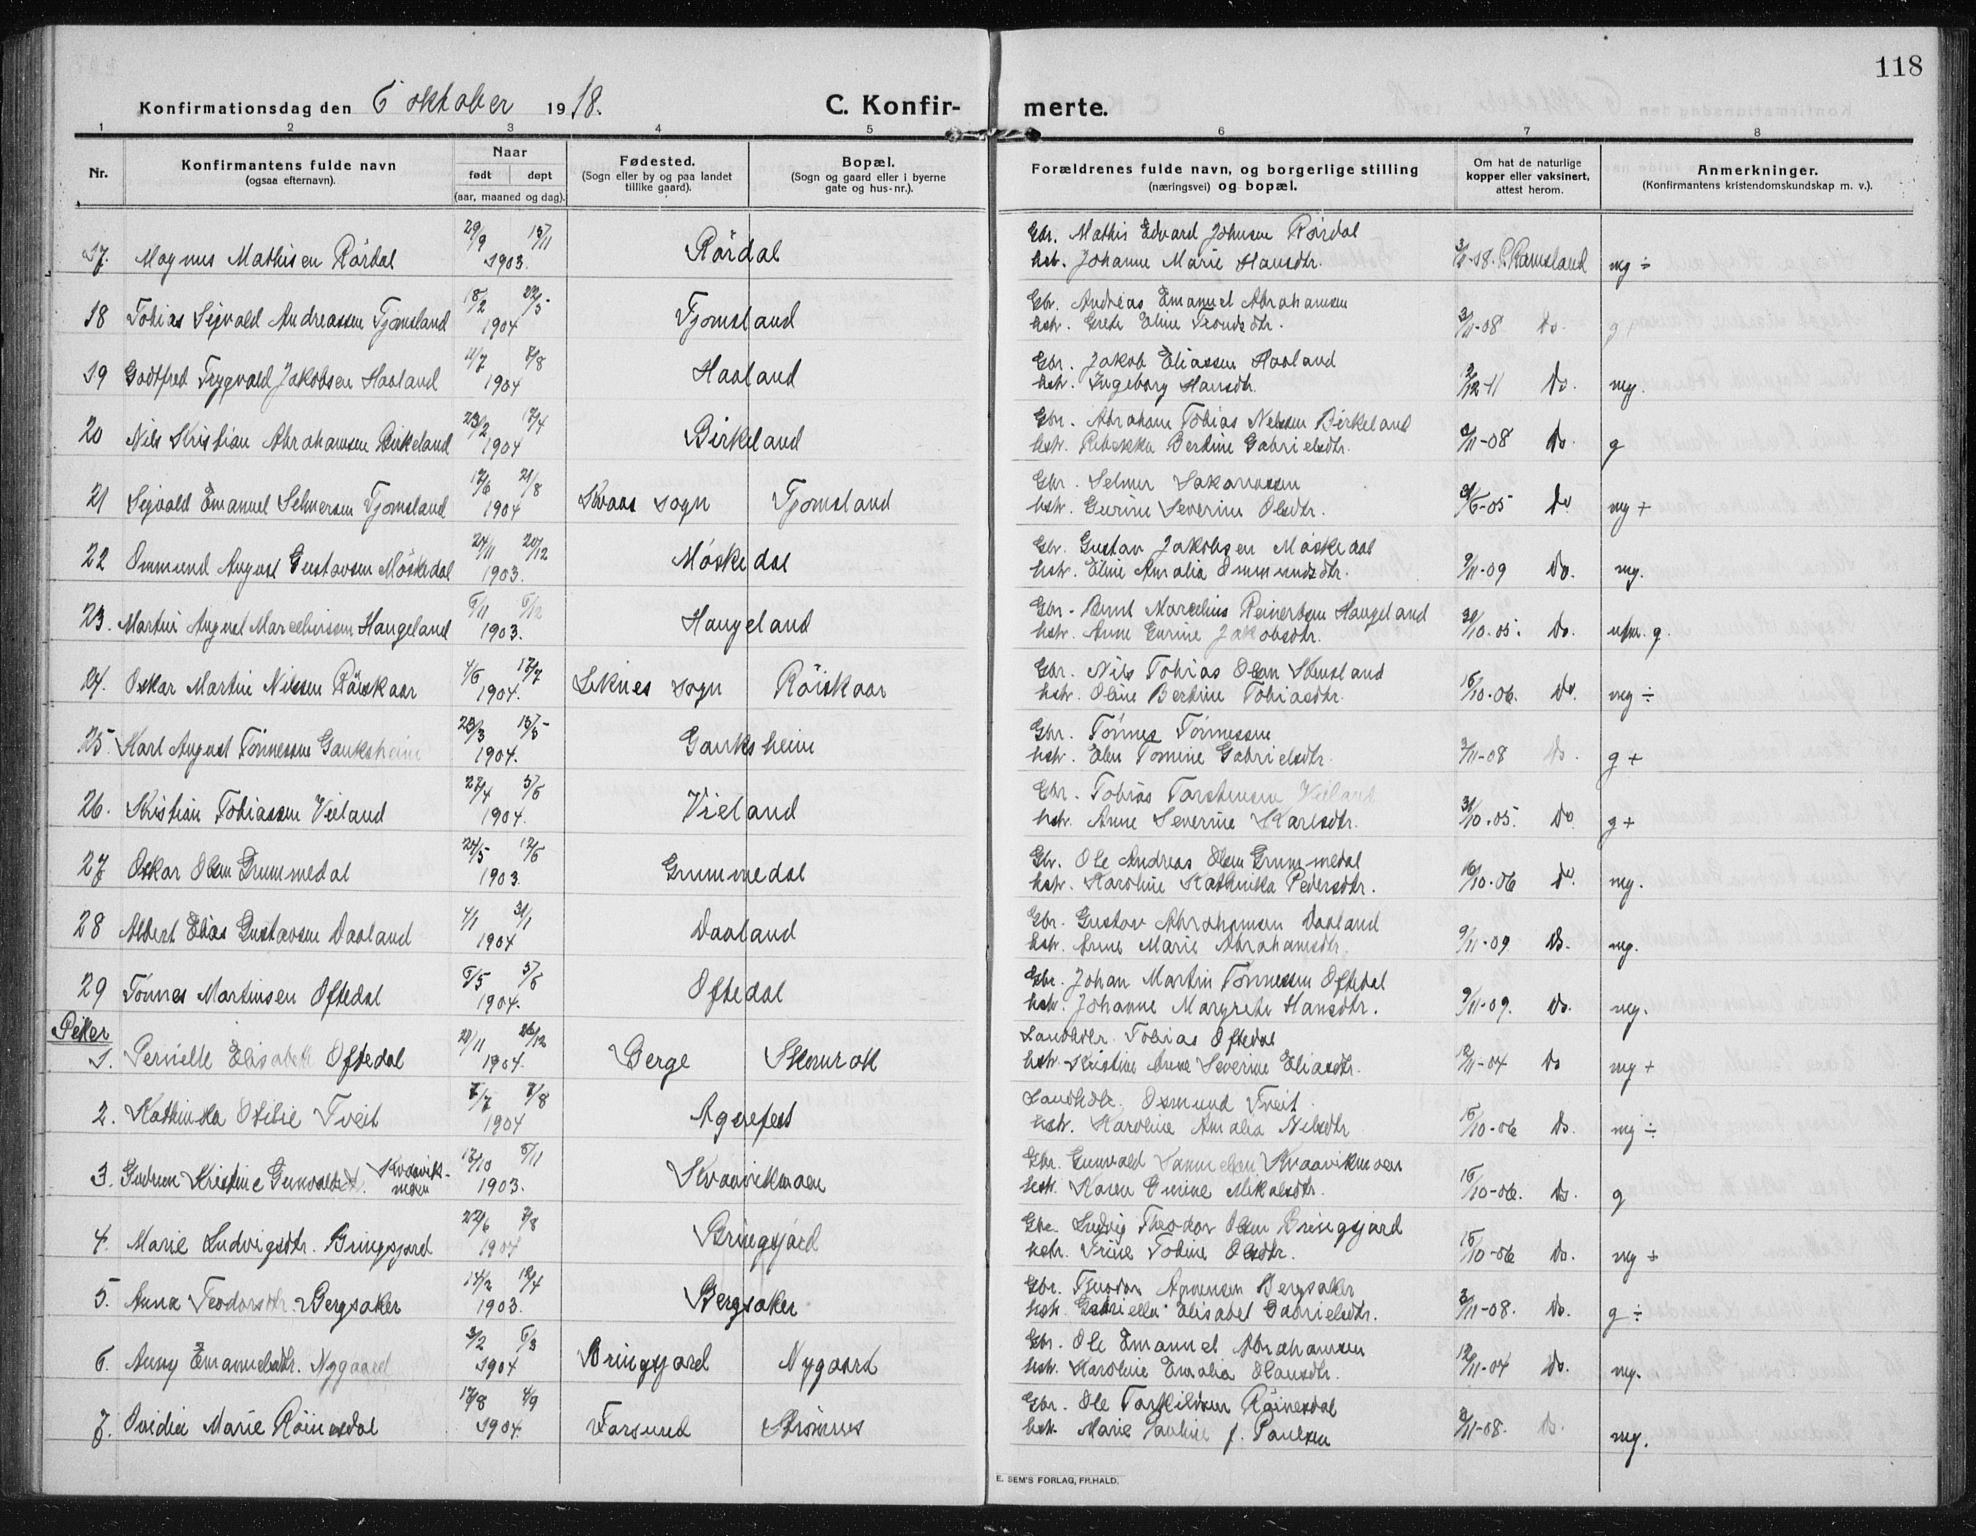 118
Konfirmationsdag den 6 oktober 1918.
C. Konfirmerte.
1 2 3 4 5 6 7 8
Nr. Konfirmantens fulde navn (ogsaa efternavn). Naar født døpt (aar, maaned og dag). Fødested. (Sogn eller by og paa landet tillike gaard). Bopæl. (Sogn og gaard eller i byerne gate og hus-nr.). Forældrenes fulde navn, og borgerlige stilling (næringsvei) og bopæl. Om hat de naturlige kopper eller vaksinert, attest herom. Anmerkninger. (Konfirmantens kristendomskundskap m. v.).
29/9 15/11 Gbr. Mathis Edvard Johnsen Rördal
17. Magnus Mathisen Rördal 1903. Rördal hstr. Johanne Marie Hansdtr. P. Ramsland mg ÷
18/2 22/5 Gbr. Andreas Emanuel Abrahamsen
18 Tobias Sigvald Andreassen Tjomsland 1904 Tjomsland hstr. Grete Eline Trondsdtr. 3/11-08 Do. g
11/7 8/8 Gbr. Jakob Eliassen Haaland
19 Godtfred Trygvald Jakobsen Haaland 1904 Haaland hstr. Ingeborg Hansdtr. 2/12-11 Do. mg.
23/2 17/4 Gbr. Abraham Tobias Nelsen Birkeland
20 Nils Kristian Abrahamsen Birkeland 1904 Birkeland hstr. Rebekka Bertine Gabrielsdtr. 3/11-08 Do. g
17/6 21/8 Gbr. Selmer Sakariassen
21 Sigvald Emanuel Selmersen Tjomsland 1904 Kvaas sogn Tjomsland hstr. Gurine Severine Olsdtr. Do mg +
24/11 20/12 Gbr. Gustav Jakobsen Möskedal
22 Ommund August Gustavsen Möskedal 1903. Möskedal hstr. Eline Amalia Ommundsdtr. 9/11-09 Do. mg.
6/11 6/12 Gbr. Bernt Marcelius Reinertsen Haugeland
23. Martin August Marceliusen Haugeland 1903. Haugeland hstr. Anne Gurine Jakobsdtr. 30/10-05. Do. g.
4/6 17/7 Gbr. Nils Tobias Olsen
24. Oskar Martin Nilssen Röiskaar 1904. Liknes sogn Röiskaar hstr. Oline Bertine Tobiasdtr. 15/10-06. Do. mg ÷
23/3 15/5 Gbr. Tönnes Tönnessen
25. Karl August Tönnessen Gauksheim 1904. Gauksheim hstr. Elen Tomine Gabrielsdtr. 3/11-08 Do. g +
22/4 5/6 Gbr. Tobias Torstensen Vieland
26. Kristian Tobiassen Vieland 1904. Vieland hstr. Anne Severine Karlsdtr. 30/10-05. Do g +
24/5 12/6 Gbr. Ole Andreas Olsen Grummedal
27 Oskar Olsen Grummedal 1903 Grummedal hstr. Karoline Kathinka Pedersdtr. 16/10-06 Do. mg.
4/1 31/1 Gbr. Gustav Abrahamsen Daaland
28 Albert Elias Gustavsen Daaland 1904 Daaland hstr. Anne Marie Abrahamsdtr. 9/11-09 Do. mg.
6/5 5/6 Gbr. Johan Martin Tönnessen Oftedal
29 Tönnes Martinsen Oftedal 1904. Oftedal hstr. Johanne Margrete Hansdtr. 9/11-09. Do. mg.
Piker 26/12 Landhdlr. Tobias Oftedal
1. Pernille Elisabeth Oftedal 1904. Berge Skomrak hstr. Kristine Anne Severine Eliasdtr. 12/11-04 Do mg +
7/7 7/8 Landhdlr. Osmund Tveit
2. Kathinka Otilie Tveit 1904 Agerefest hstr. Karoline Amalia Nilsdtr 15/10-06 Do. mg ÷
17/10 8/11 Gbr. Gunvald Samuelsen Kvaavikmoen
3. Gudrun Kristine Gunvaldsdt. Kvaavikmoen 1903. Kvaavikmoen hstr. Karen Gurine Mikalsdtr. 15/10-06. Do. g
22/6 7/8 Gbr. Ludvig Theodor Olsen Bringsjord
4. Marie Ludvigsdtr. Bringsjord 1904 Bringsjord hstr. Trine Tobine Olsdtr. 15/10-06 Do. mg ÷
14/2 12/4 Gbr. Theodor Bergsaker
5. Anna Teodorsdtr. Bergsaker 1903. Bergsaker hstr. Gabriella Elisabet Gabrielsdtr. 3/11-08. Do. g ÷
3/2 6/3 Gbr. Ole Emanuel Abrahamsen
6. Anny Emanuelsdtr. Nygaard 1904 Bringsjord Nygaard hstr. Karoline Emalia Olausdtr. 12/11-04 Do. mg.
17/8 4/9 Gbr. Ole Torkildsen Röinesdal
7. Ovidia Marie Röinesdal 1904. Farsund Strømnes hstr. Marie Pauline f. Paulsen 3/11-08. Do. mg.
E. SEM'S FORLAG, FR.HALD.